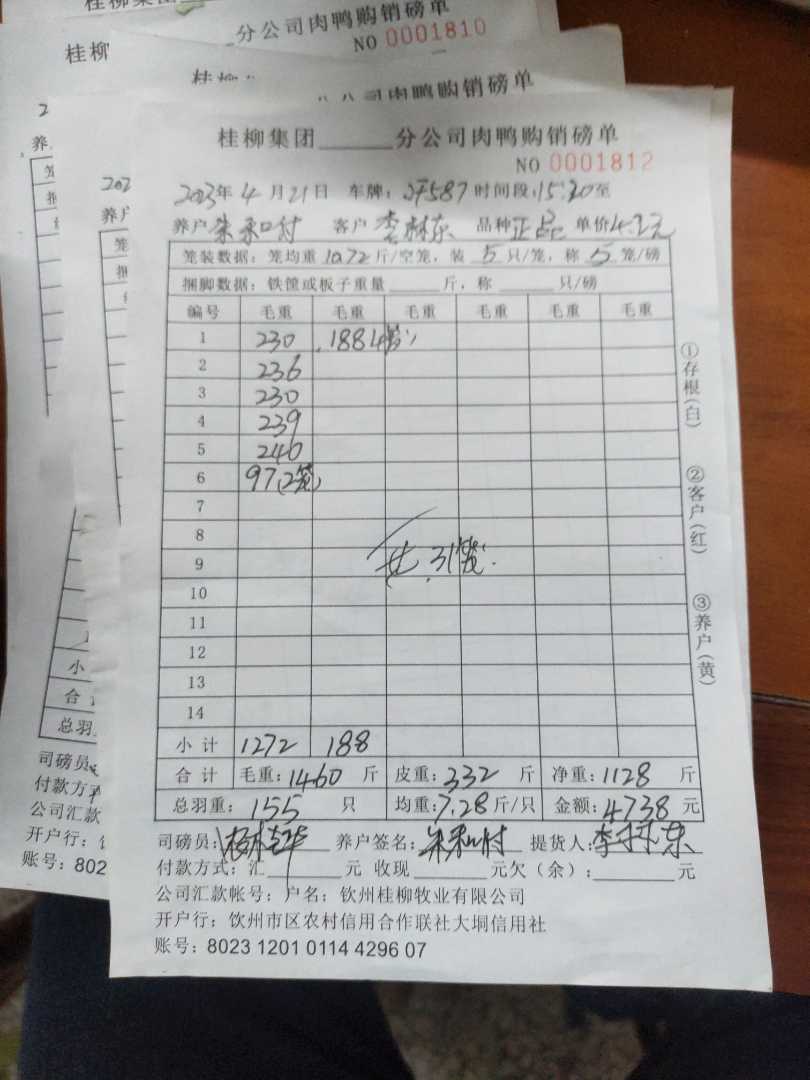 桂柳集团
桂柳 分公司肉鸭购销磅单
NO 0001810
分公司肉鸭购销磅单
桂柳集团______分公司肉鸭购销磅单
NO 0001812
2023年4月21日 车牌: 587 时间段:15:30至
养户 朱和付 客户 李林东 品种 正品 单价4.2元
笼装数据: 笼均重 10.72 斤/空笼, 装 5 只/笼, 称 5 笼/磅
捆脚数据: 铁筐或板子重量______斤, 称______只/磅
编号 毛重 毛重 毛重 毛重 毛重 毛重
1 230 188(4笼)
2 236
3 230
4 239
5 240
6 97(2笼)
7
8
9 共31笼
10
11
12
13
14
小计 1272 188
合计 毛重:1460 斤 皮重:332 斤 净重:1128 斤
总羽重: 155 只 均重:7.28斤/只 金额:4738 元
司磅员: 养户签名: 朱和付 提货人:李林东
付款方式: 汇______元 收现______元欠(余):______元
公司汇款帐号: 户名: 钦州桂柳牧业有限公司
开户行: 饮州市区农村信用合作联社大垌信用社
账号: 8023 1201 0114 4296 07
①存根(白)
②客户(红)
③养户(黄)
小
合
总羽
司磅员
付款方
公司汇款
开户行:
账号: 802